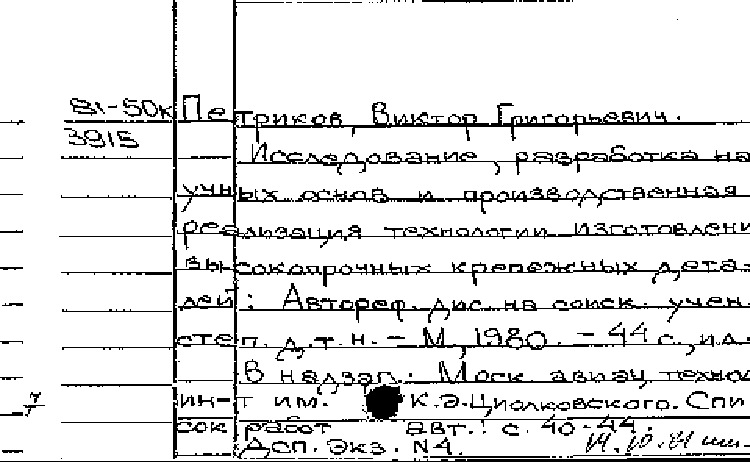 81-50к Петриков, Виктор Григорьевич.
3915
Исследование, разработка на
учных основ и производственная
реализация технологии изготовлени
высокопрочных крепежных дета-
лей: Автореф. дис. на соиск. учен
степ. д.т.н. - М, 1980. - 44 с., ил.
В надзаг.: Моск. авиац. техно
ин-т им. К.Э.Циолковского. Спи
сок работ авт.: с. 40-44.
Дсп. Экз. N4.